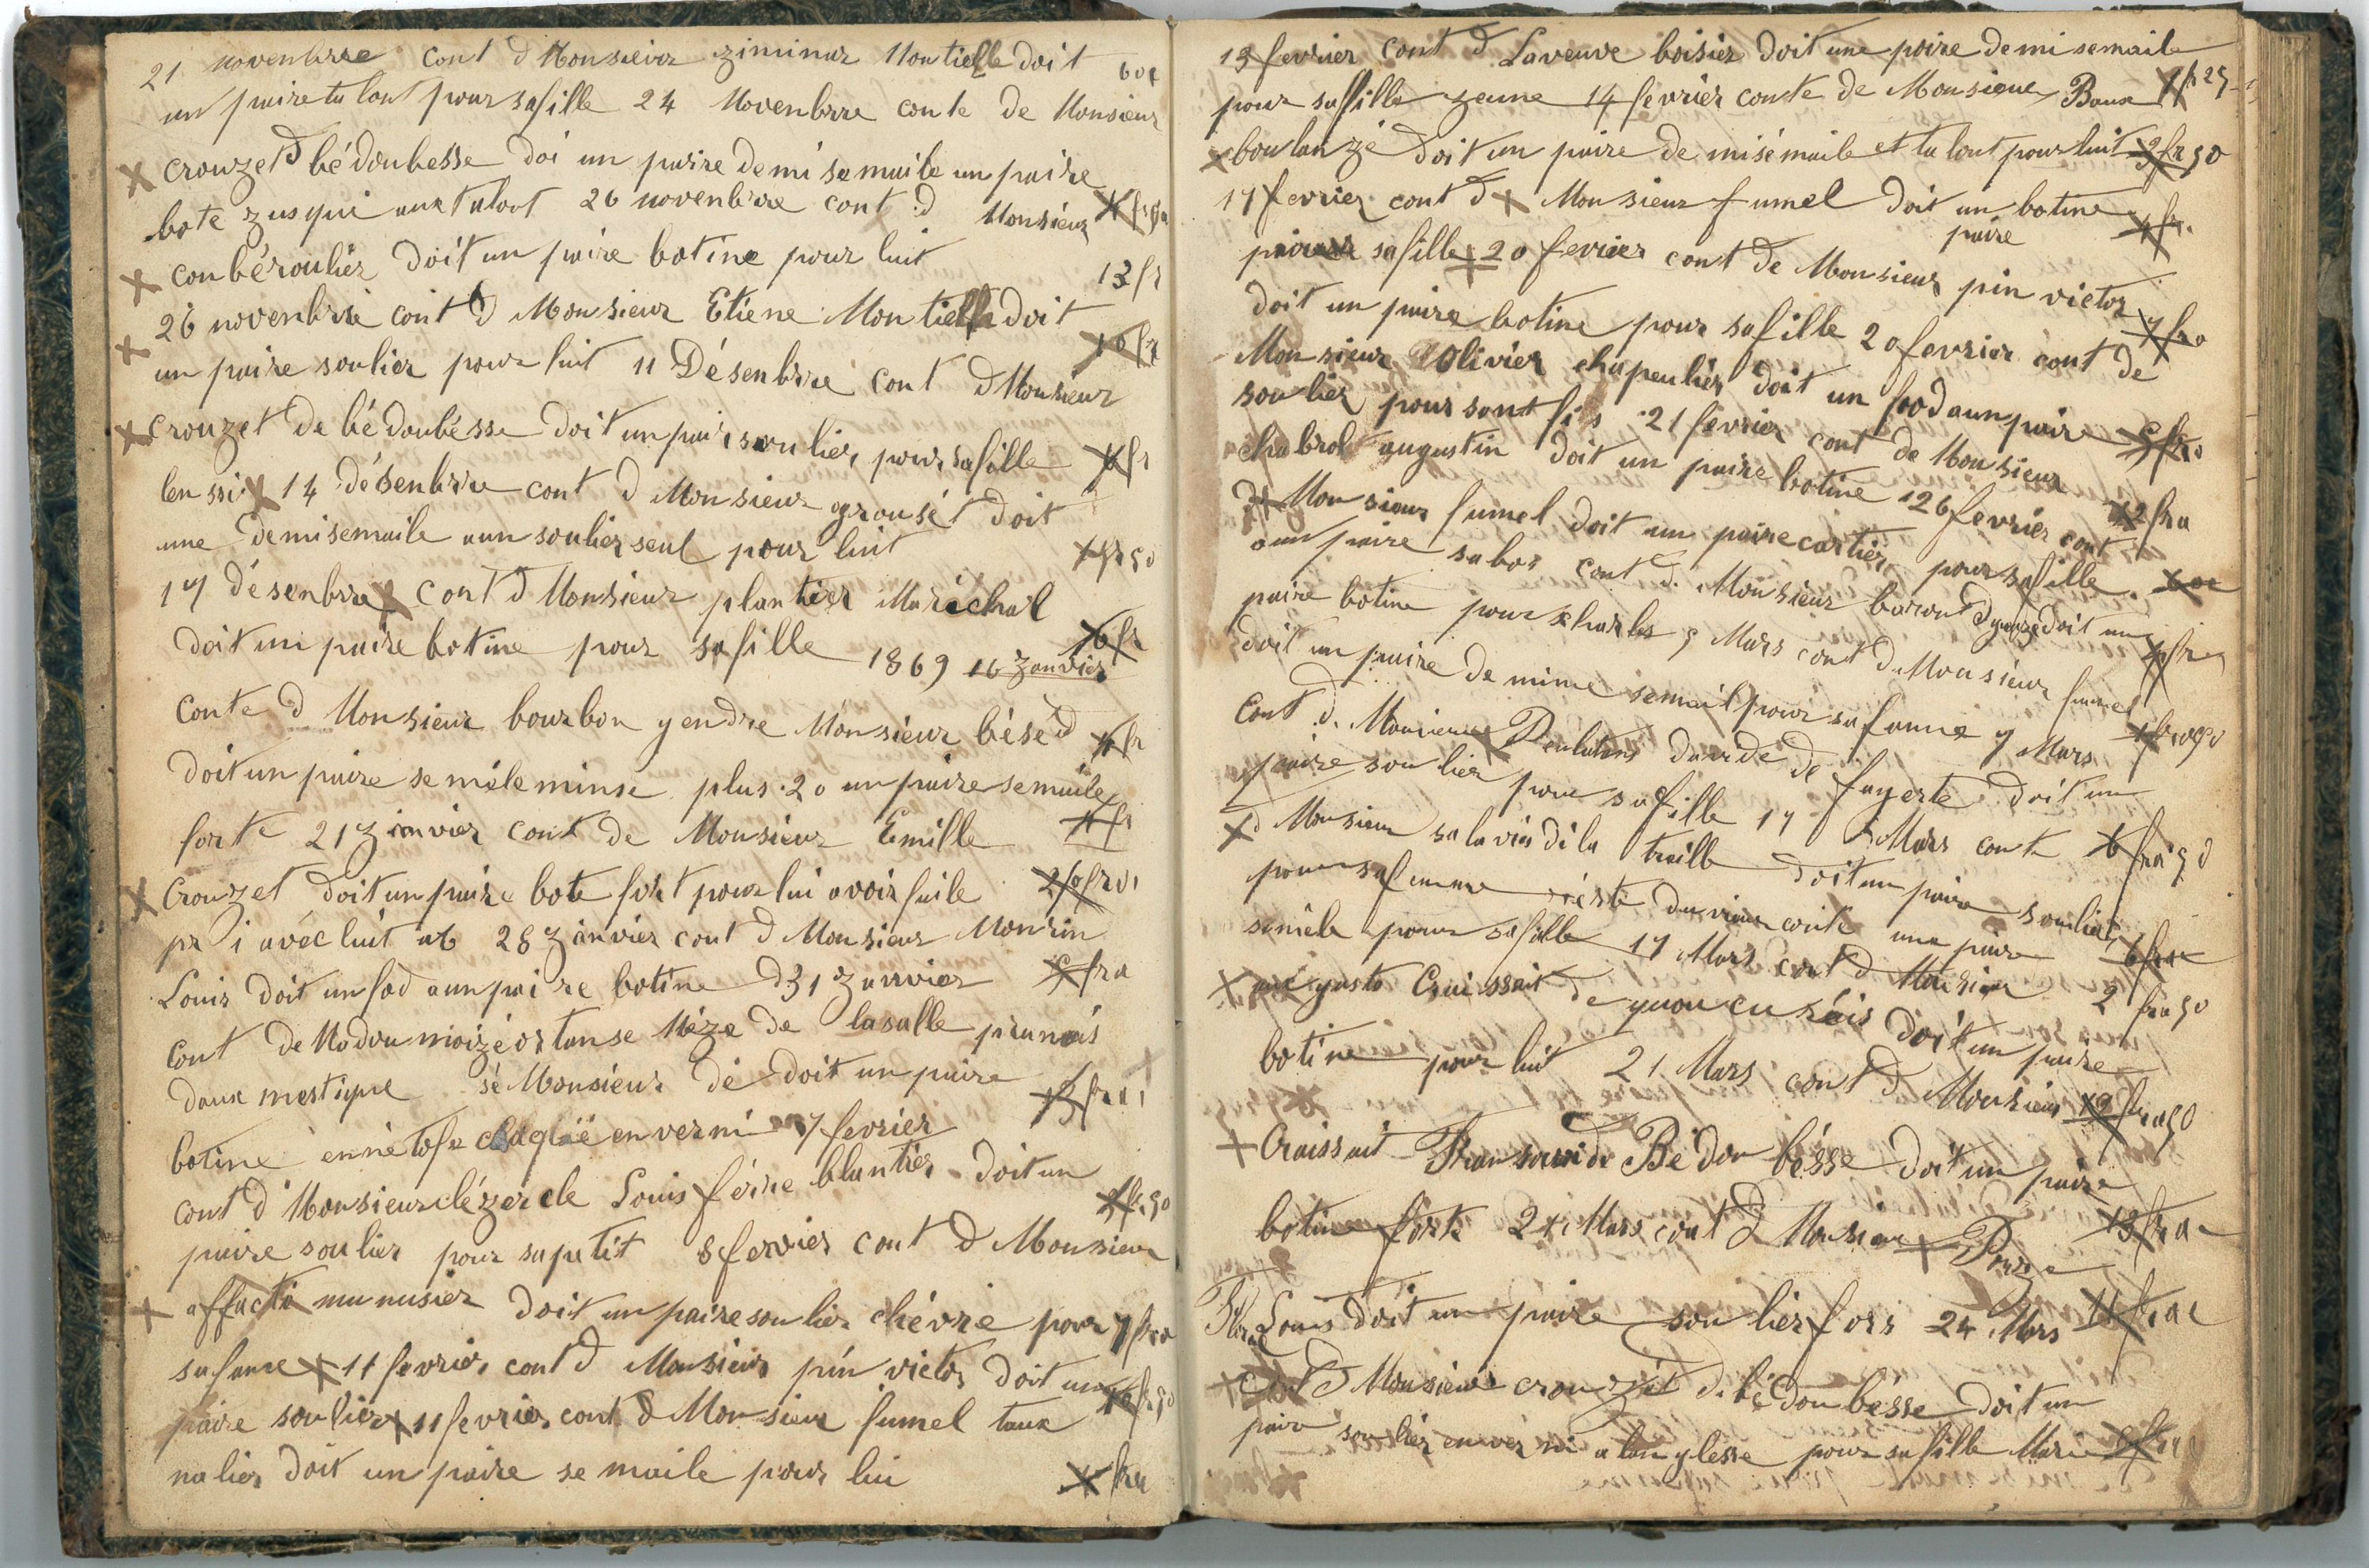 21 novenbre cont d Monsieur ziminar Montielle doit 60c
un paire talont pour safille 24 Novenbre conte de Monsieur
crouzet d bédoubesse doi un paire demi semaile un paire
bote zusqui aux talont 26 novenbre cont d Monsieur
conbéroulier doit un paire botine pour luit 13 fr
26 novenbre cont d Monsieur Etiene Montielle doit
un paire soulier pour luit 11 Désenbre cont d Monsieur 10 fr
crouzet de bédoubésse doit un pair soulier pour safille
14 désenbre cont d Monsieur grousét doit
une demisemaile aun soulier seul pour luit
17 désenbre cont d Monsieur plantier Maréchal
doit un paire botine pour safille 1869 16 zanvier
conte d Monsieur bourbon gendre Monsieur bésé d
doit un paire seméle minse plus 20 un paire semaile
forte 21 zanvier cont de Monsieur Emille
crouzet doit un paire bote fort pour lui avoir faile
pr i avéc luit ab 28 zanvier cont d Monsieur Monrin
Louis doit un fod aun paire botine d 31 zanvier
cont de Madoumoizé ortanse Méze de lasalle
doux mestique sé Monsieur dé doit un paire 13 fra
botine enné tofe en verni 7 fevrier
cont d Monsieur clézercle Louis férre blantier doit un
paire soulier pour sapetit 8 fevrier cont d Monsieur
affacti munusier doit un paire soulier chévre pour 7 fra
safame 11 fevrier cont d Monsieur pin victor doit un
paire soulier 11 fevrier cont d Monsieur fumel toux
nalier doit un paire semaile pour lui
13 fevrier cont d Laveuve boisier doit une paire demi semaile
pour safille zeune 14 fevrier conte de Monsieur Boux
boulanzé doit un paire demisémaile et talont pour luit 3 fr 50
17 fevrier cont d Monsieur fumel doit un botine
paire
safille 20 fevrier cont de Monsieur pin victor
doit un paire botine pour safille 20 fevrier cont de 7 fra
Monsieur Olivier chapeulier doit un fod aun paire
soulier pour sont fis 21 fevrier cont de Monsieur
chabrol augustin doit un paire botine 26 fevrier cont
d Monsieur fumel doit un paire cartier pour safille 60c
aun paire sabos cont d Monsieur baront doit un
paire botine pour charles 5 Mars cont d Monsieur fumel
doit un paire de mime semail pour safame 7 Mars
cont d Monsieur davide de fayerte doit un
paire soulier pour safille 17 Mars conte
d Monsieur salaviè di la traille doit un paire soulier
pour safamme réste du vieux conte une paire
seméle pour safille 17 Mars cont d Monsieur 2 fra 50
auguste Craissait de doit un paire
botine pour luit 21 Mars cont d Monsieur
Craissait Fransoui de Bédoubésse doit un paire
botine forte 24 Mars cont d Monsieur 13 fra
Louis doit un paire soulier fors 24 Mars
cont d Monsieur crouzét d bédoubésse doit un
pair soulier en vérni alanglesse pour safille Marie